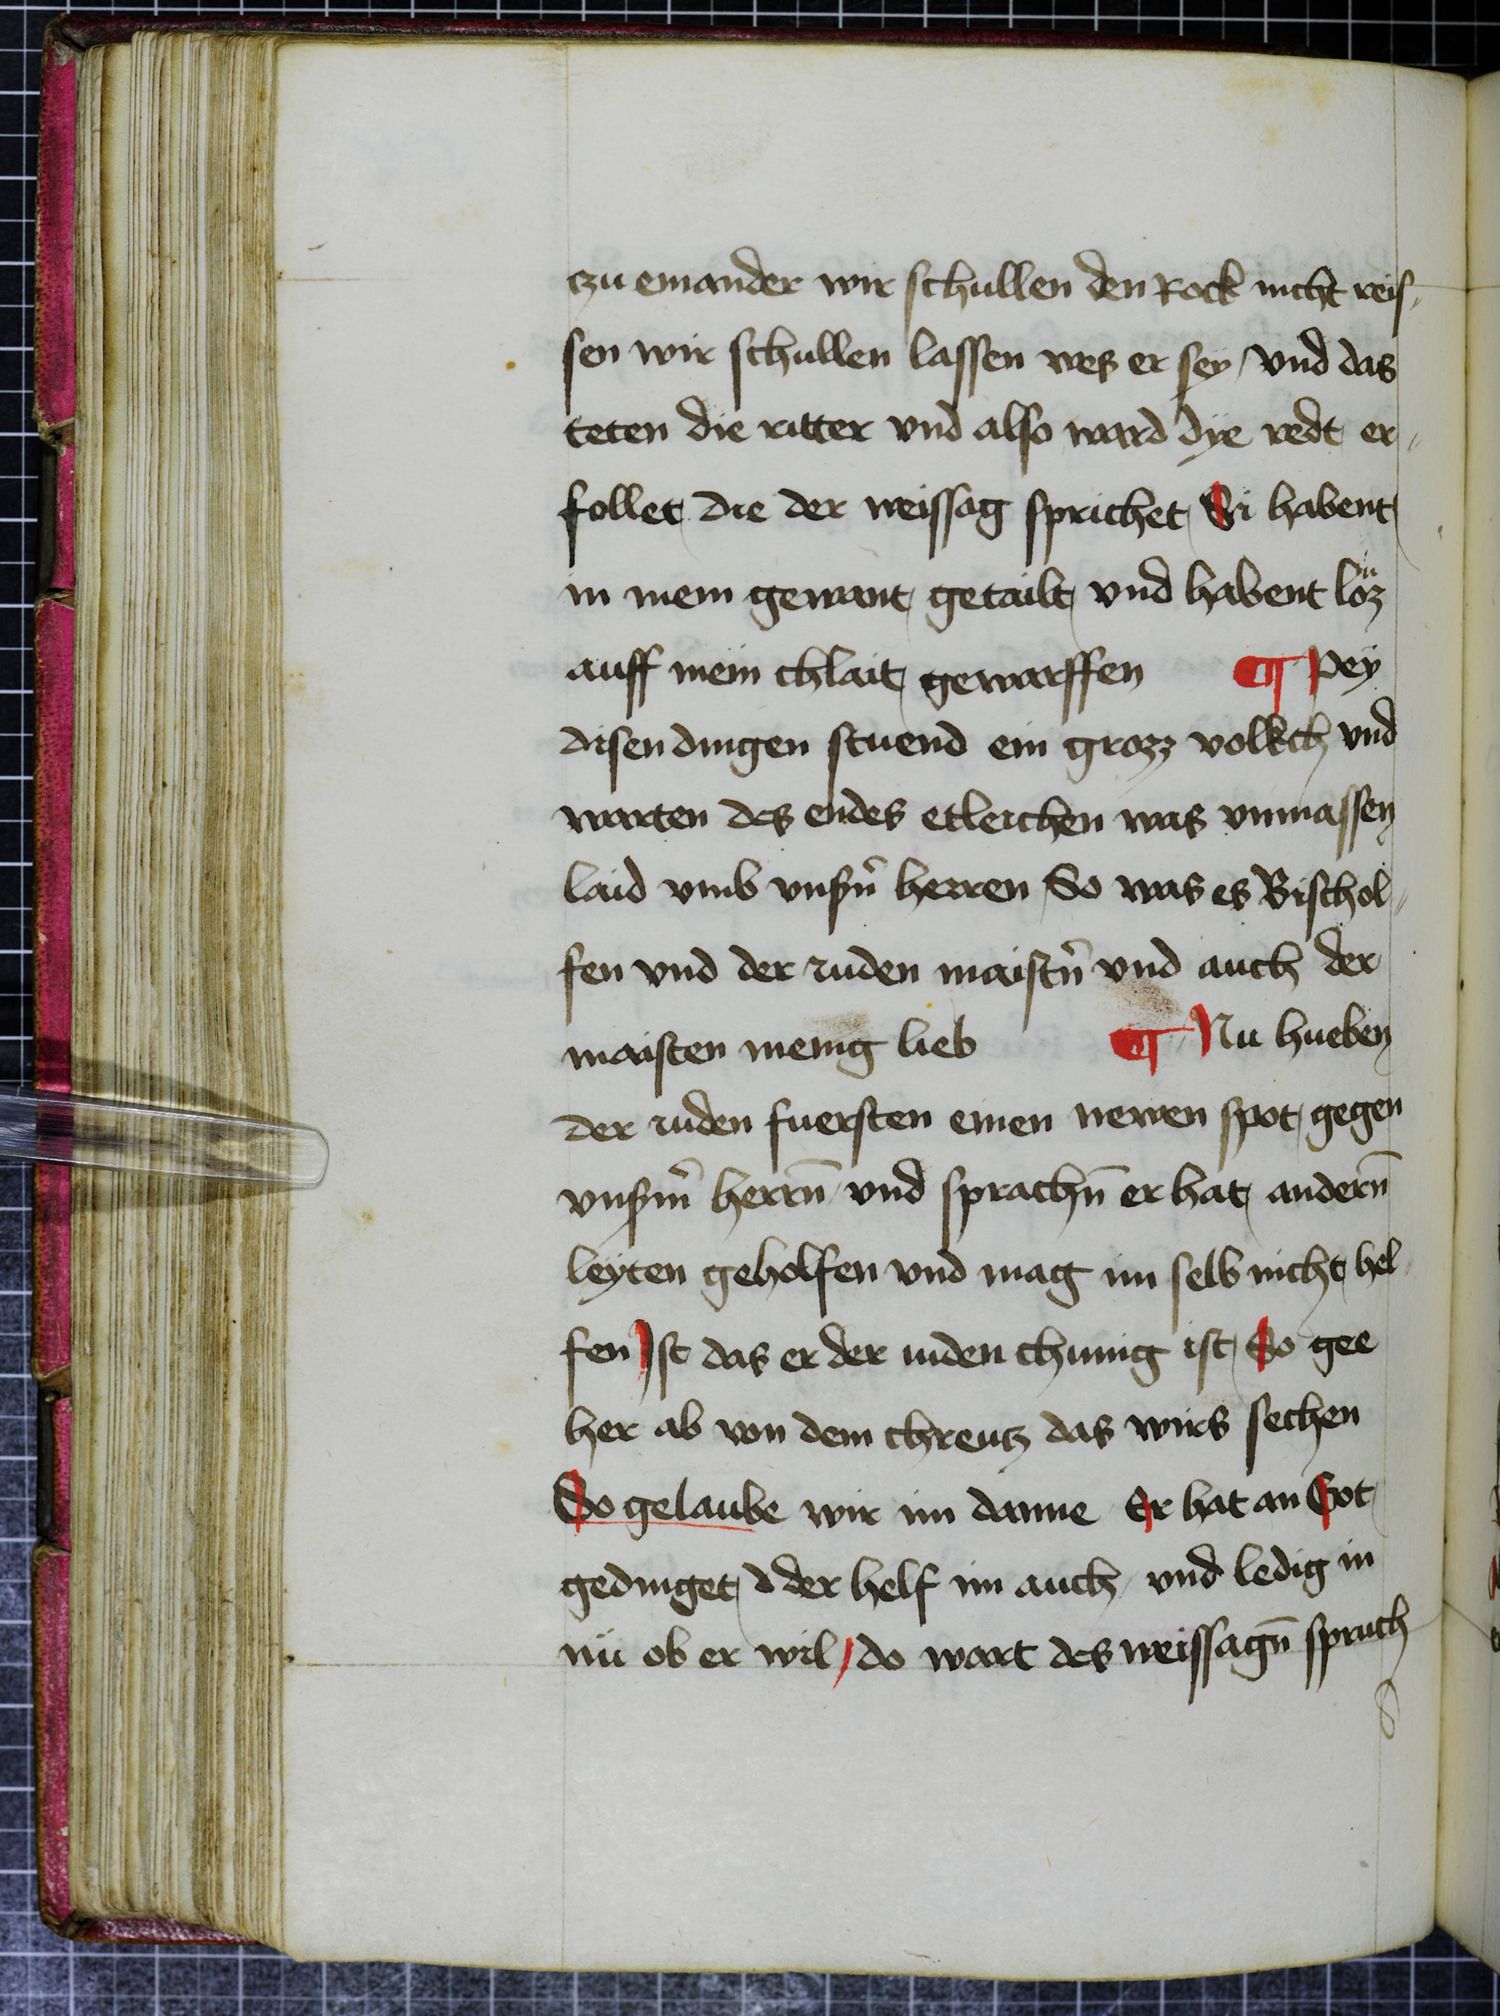 czu einander wir schullen den Rock nicht reis-
sen wir schullen lassen wes er sey / vnd das
teten die ritter vnd also ward dye redt er-
follet die der weissag sprichet Si habent
in mein gewant getailt vnd habent loͤz
auff mein chlait gewarffen ¶ Pey
disen dingen stuend ein grozz volkch vnd
warten des endes etleichen was vnmassen
laid vmb vnsẽn herren So was es Bischol-
fen vnd der iuden maistñ vnd auch der
maisten menig lieb ¶ Nu hueben
der iuden fuersten einen newen spot gegen
vnsm̃ herrñ vnd sprachñ er hat anderñ
leyten geholfen vnd mag im selb nicht hel-
fen Ist das er der iuden chunig ist So gee
her ab von dem chreutz das wirs sechen
So gelaube wir im danne Er hat an Got
gedinget d der helf im auch / vnd ledig in
nü ob er wil / do wart des weissagñ spruch